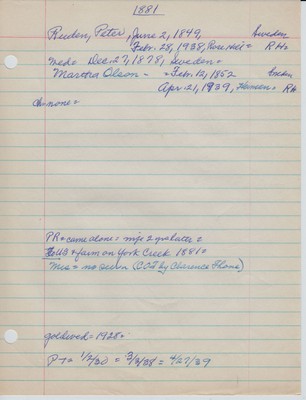 1881
Ruden, Peter, June 2, 1849, Sweden
Feb. 28, 1938, Rose Hei = RH=
me do Dec. 27, 1878, Sweden=
Martha Olson - = Feb. 12, 1852 Sweden
Apr. 21, 1939, Hansen = RH
ch=none=
PR= came alone = mfe 2 yrs later =
to US = farm on York Creek 1881=
Mrs = no given (COF by Clarence Flom)
goldwed=1928=
PT= 1/2/30 = 3/3/38 = 4/27/39